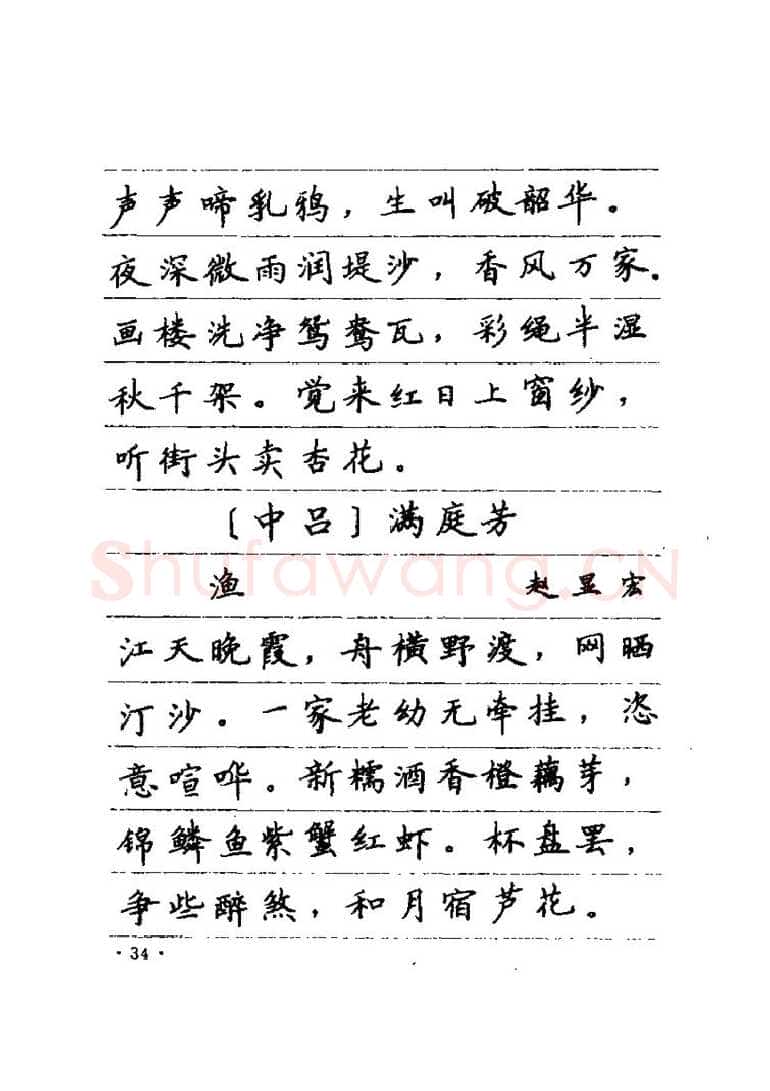 声声啼乳鸦，生叫破韶华。
夜深微雨润堤沙，香风万家。
画楼洗净鸳鸯瓦，彩绳半湿
秋千架。觉来红日上窗纱，
听街头卖杏花。
〔中吕〕满庭芳
Shufawang.CN
渔 赵显宏
江天晚霞，舟横野渡，网晒
汀沙。一家老幼无牵挂，恣
意喧哗。新糯酒香橙藕芽，
锦鳞鱼紫蟹红虾。杯盘罢，
争些醉煞，和月宿芦花。
·34·